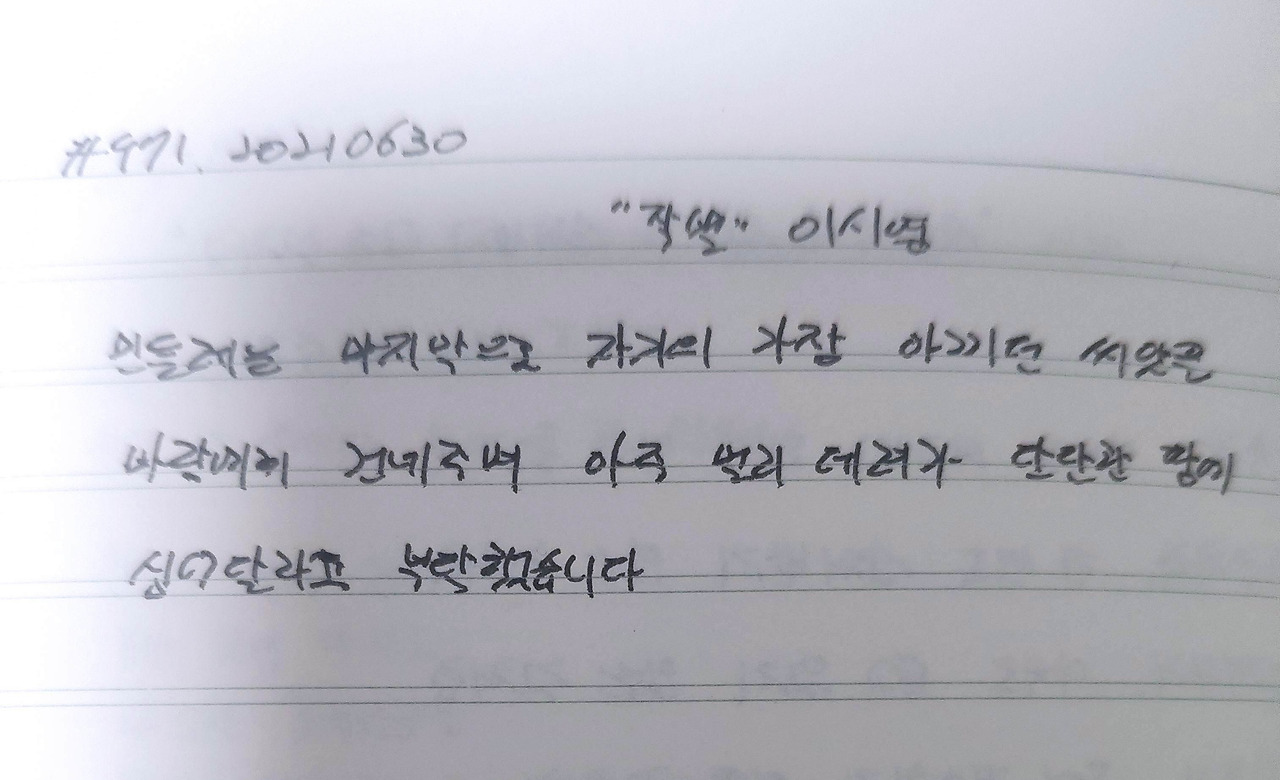 #971. 20210630
"작별" 이시영
민들레는 마지막으로 자기의 가장 아끼던 씨앗을
바람에게 건네주며 아주 멀리 데려가 단단한 땅에
심어달라고 부탁했습니다